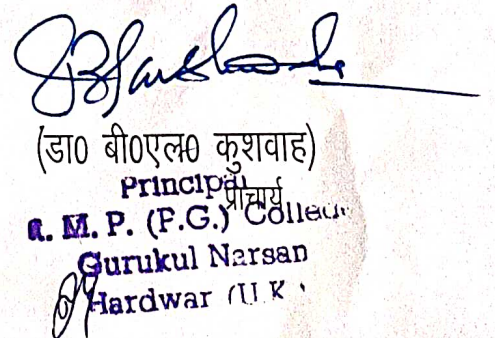 (डा0 बी0एल0 कुशवाह)
Principal
प्राचार्य
M. P. (P.G.) College
Gurukul Narsan
Hardwar (U.K.